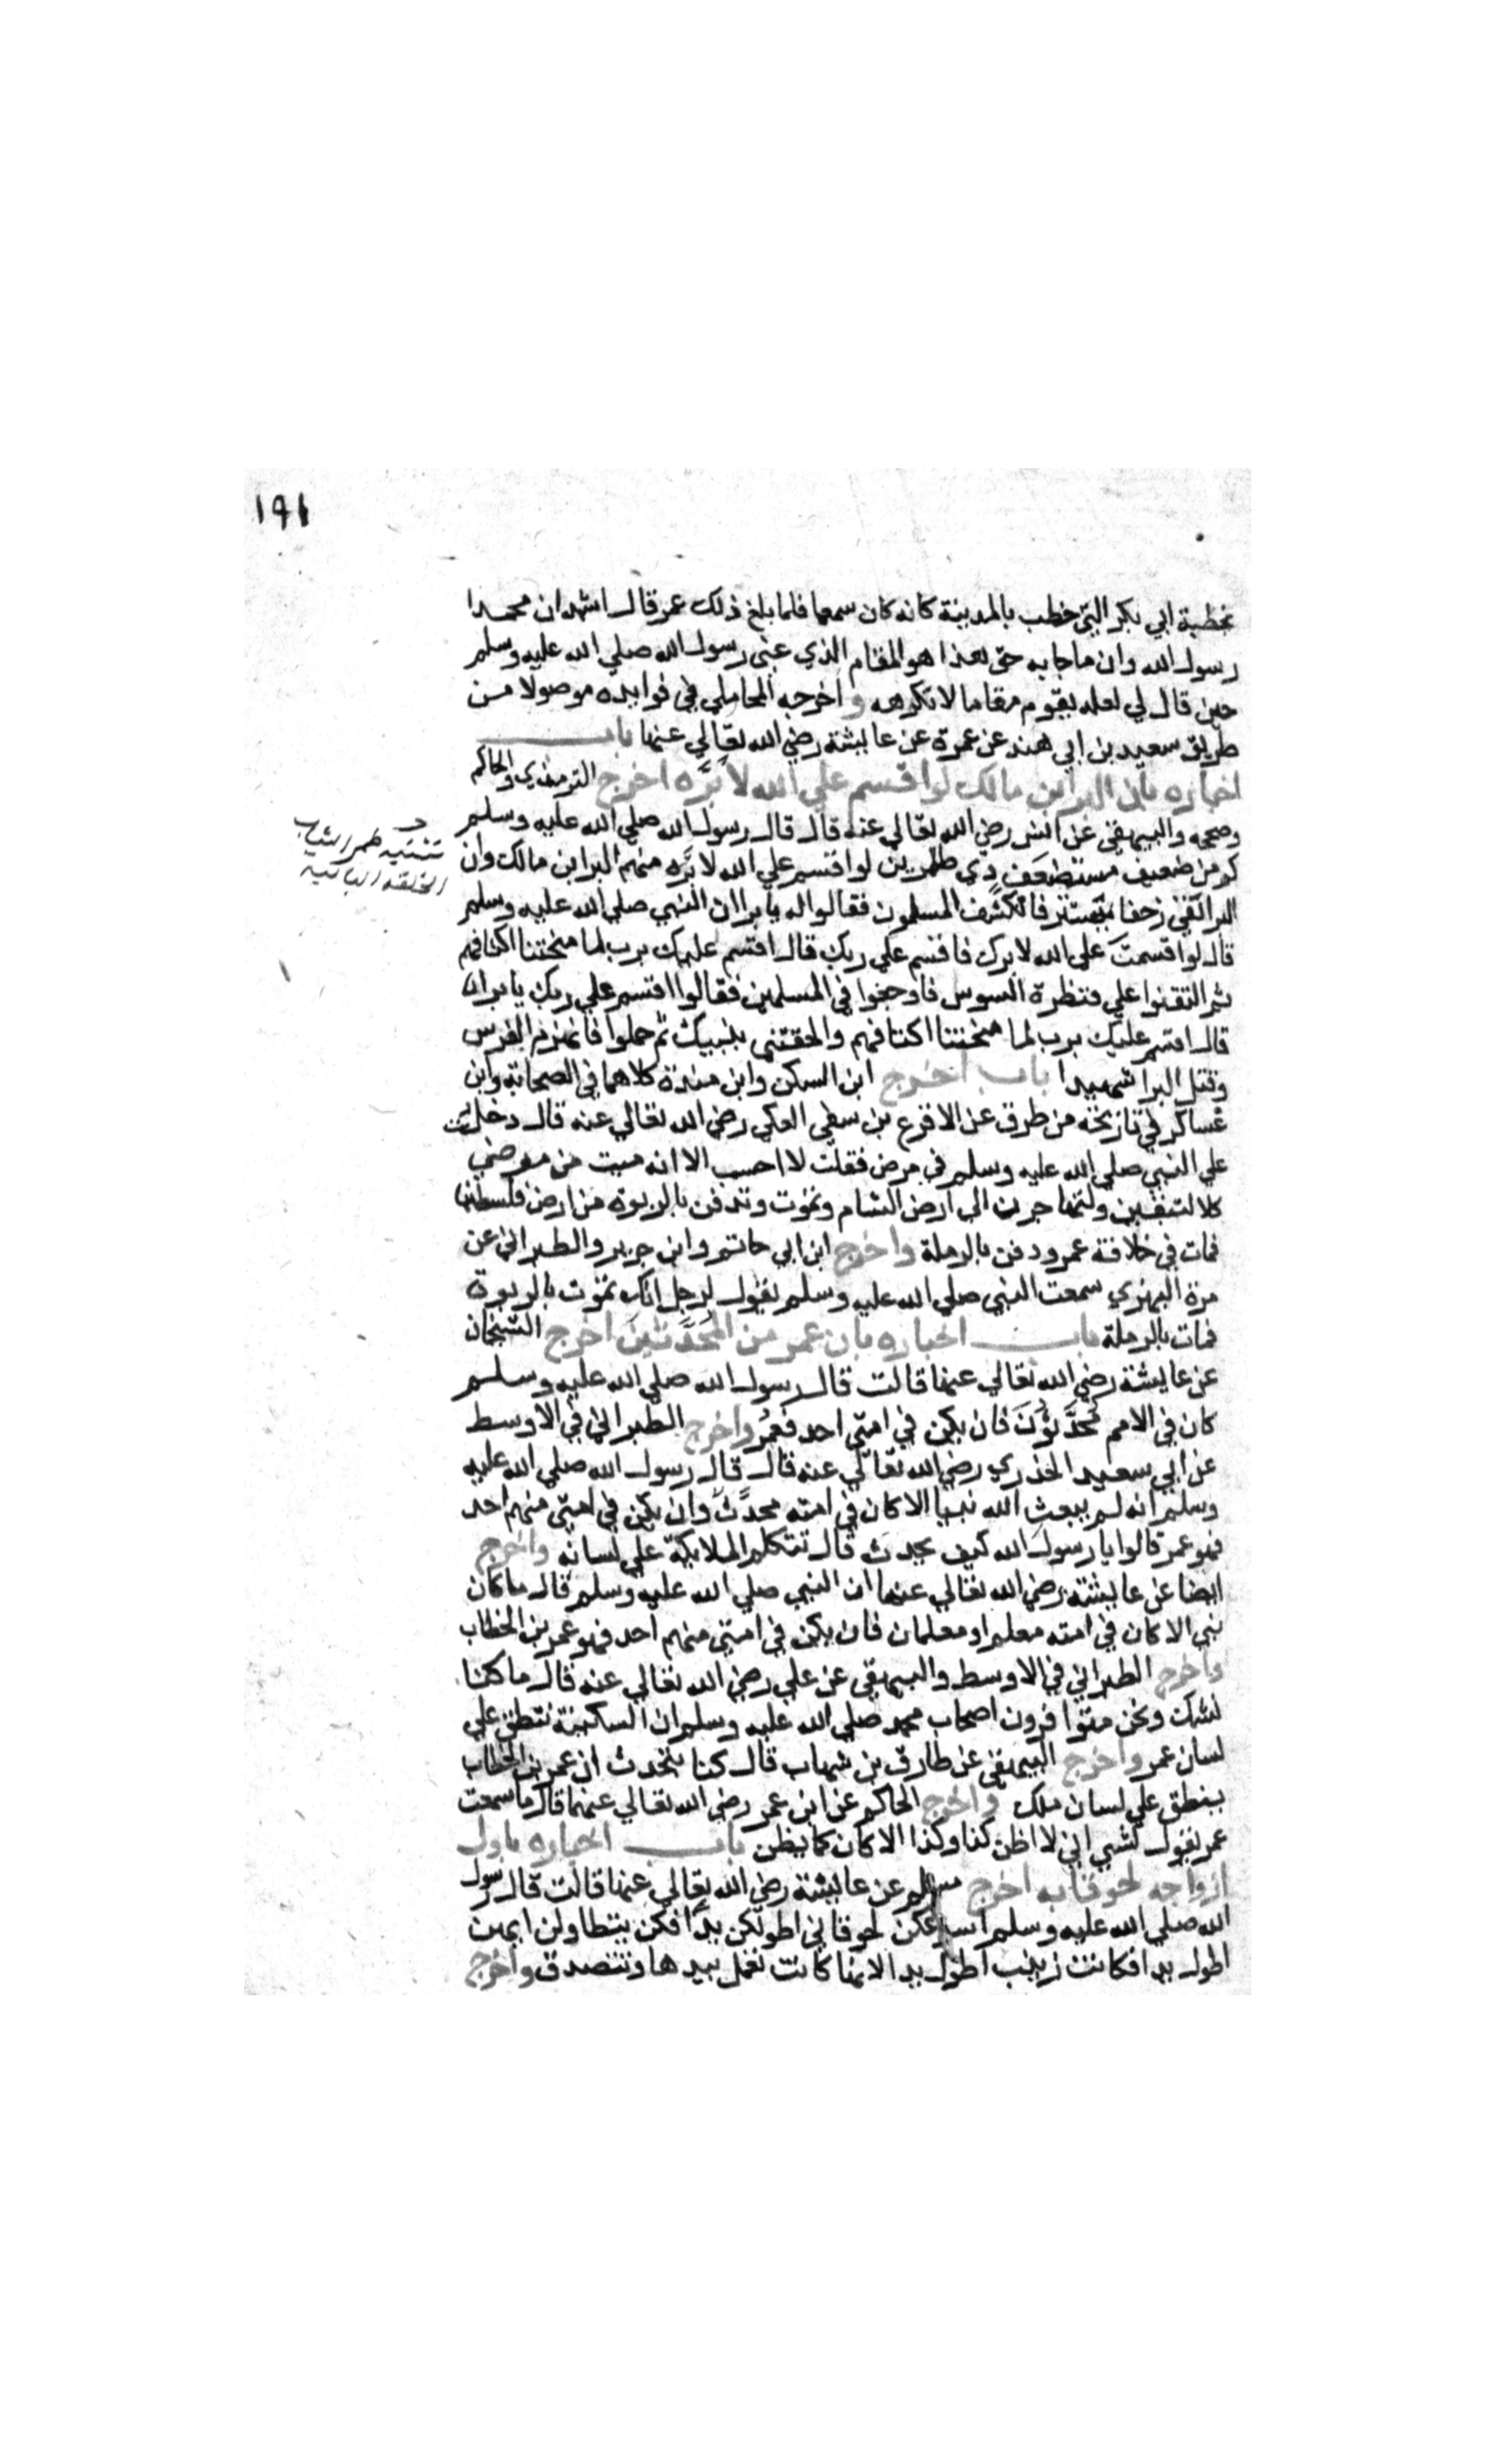 ١٩١
بخطبة ابي بكر التي خطب بالمدينة كانه كان سمعها فلما بلغ ذلك عمر قال اشهد ان محمدا
رسول الله وان ما جا به حق هذا هو المقام الذي عنى رسول الله صلي الله عليه وسلم
حين قال لي لعله يقوم مقاما لا تكرهه واخرجه المحاملي في فوايده موصولا من
طريق سعيد بن ابي هند عن عمرة عن عايشة رضي الله تعالي عنها باب
اخباره بان البرا بن مالك لو اقسم علي الله لابرَّه اخرج الترمذي والحاكم
وصححه والبيهقي عن انس رضي الله تعالي عنه قال قال رسول الله صلي الله عليه وسلم
تثنية طمر الثياب
الخلقة البالية
كم من ضعيف مستضعَف ذي طمرين لو اقسم علي الله لابَرَّه منهم البرا بن مالك وان
البرا لقي زحفا بتستر فانكشف المسلمون فقالوا له يا برا ان النبي صلي الله عليه وسلم
قال لو اقسمتَ علي الله لابرك فاقسم علي ربك قال اقسم عليك يرب لما منحتنا اكتافهم
ثم التقوا علي قنطرة السوس فاوجعوا في المسلمين فقالوا اقسم علي ربك يا برا
قال اقسم عليك يرب لما منحتنا اكتافهم والحقتني بنبيك ثم حملوا فانهزم الفرس
وقتل البرا شهيدا باب اخرج ابن السكن وابن مندة كلاهما في الصحابة وابن
عساكر في تاريخه من طرق عن الاقرع بن سفي العكي رضي الله تعالي عنه قال دخلت
علي النبي صلي الله عليه وسلم في مرض فقلت لا احسب الا انه ميت من مرضي
كلا لتبقين ولتهاجرن الي ارض الشام وتموت وتدفن بالربوة من ارض فلسطين
فمات في خلافة عمر ودفن بالرملة واخرج ابن ابي حاتم وابن جرير والطبراني عن
مرة البهزي سمعت النبي صلي الله عليه وسلم يقول لرجل انك تموت بالربوة
فمات بالرملة باب اخباره بان عمر من المُحَدَّثينَ اخرج الشيخان
عن عايشة رضي الله تعالي عنها قالت قال رسول الله صلي الله عليه وسلم
كان في الامم مُحَدَّثُونَ فان يكن في امتي احد فعمرُ واخرج الطبراني في الاوسط
عن ابي سعيد الخدري رضي الله تعالي عنه قال قال رسول الله صلي الله عليه
وسلم انه لم يبعث الله نبيا الا كان في امته محدَّث وان يكن في امتي منهم احد
فهو عمر قالوا يا رسول الله كيف يحدث قال تتكلم الملايكة علي لسانه واخرج
ايضا عن عايشة رضي الله تعالي عنها ان النبي صلي الله عليه وسلم قال ما كان
نبي الا كان في امته معلم او معلمان فان يكن في امتي منهم احد فهو عمر بن الخطاب
واخرج الطبراني في الاوسط والبيهقي عن علي رضي الله تعالي عنه قال ما كنا
نشك ونحن متوافرون اصحاب محمد صلي الله عليه وسلم ان السكينة تنطق علي
لسان عمر واخرج البيهقي عن طارق بن شهاب قال كنا نتحدث ان عمر بن الخطاب
ينطق علي لسان ملك واخرج الحاكم عن ابن عمر رضي الله تعالي عنهما قال ما سمعت
عمر يقول لشي اني لا اظن كذا وكذا الا كان كما يظن باب اخباره باول
ازواجه لحوقا به اخرج مسلم عن عايشة رضي الله تعالي عنها قالت قال رسول
الله صلي الله عليه وسلم اسرعكن لحوقا بي اطولكن يدًا فكن يتطاولن ايهن
اطول يدا فكانت زينب اطول يدا لانها كانت تعمل بيدها وتتصدق واخرج